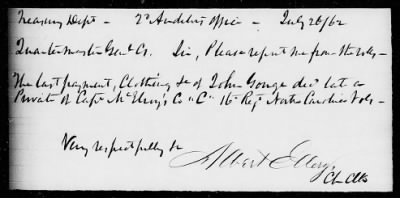 Treasury Dept - 2d Auditors Office - July 26/62
Quartermaster Genl Cs. Sir, Please report me from the rolls -
The last payment, Clothing &c of John Gouge dec'd late a
Private of Capt McElroy's Co "C" 16th Regt North Carolina Vols -
Very respectfully &c
Albert Ellery
Ch Clk